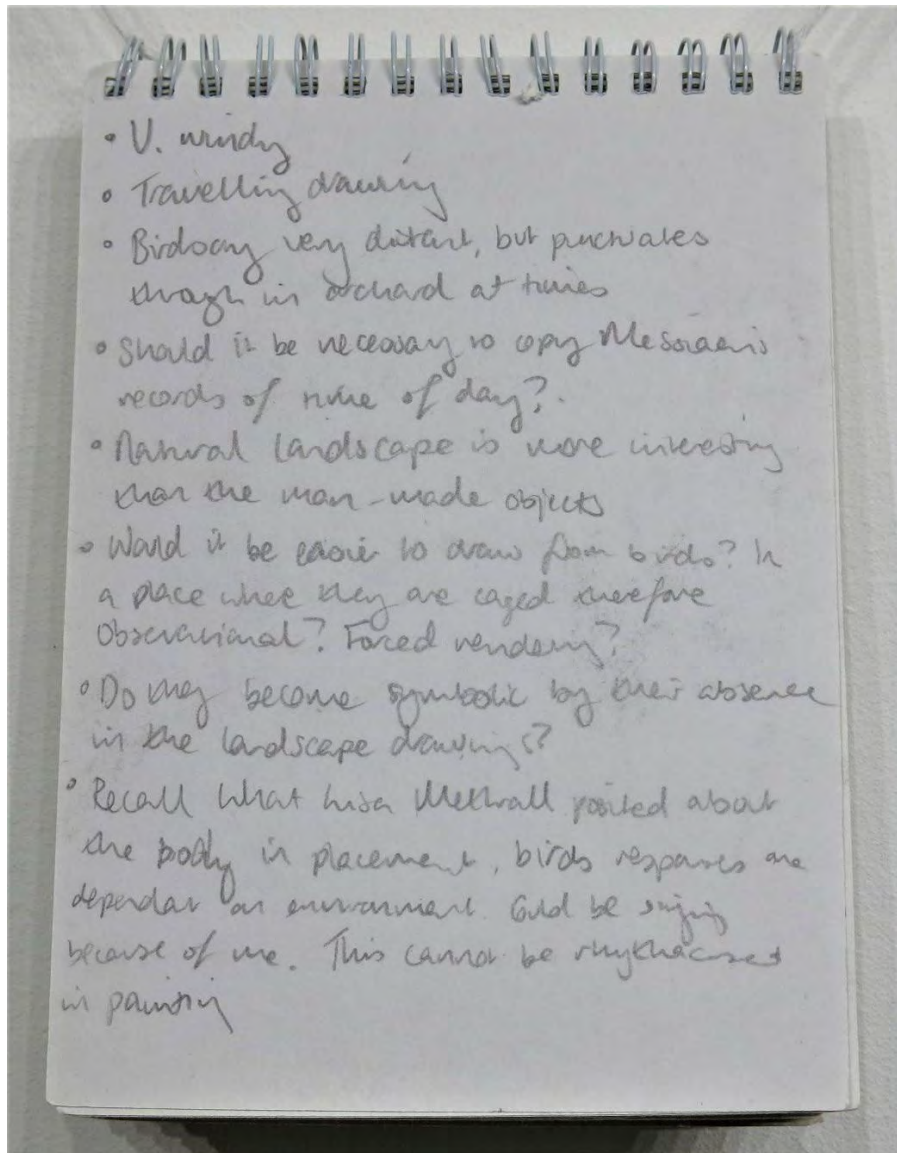 • V. windy
• Travelling drawing
• Birdsong very distant, but punctuates
through in orchard at times
• Should it be necessary to copy Messiaen's
records of time of day?
• Natural landscape is more interesting
than the man-made objects
• Would it be easier to draw from birds? In
a place where they are caged therefore
observational? Forced rendering?
• Do they become symbolic by their absence
in the landscape drawings?
• Recall what posited about
the body in placement, birds responses are
dependant on environment. Could be singing
because of me. This cannot be
in painting